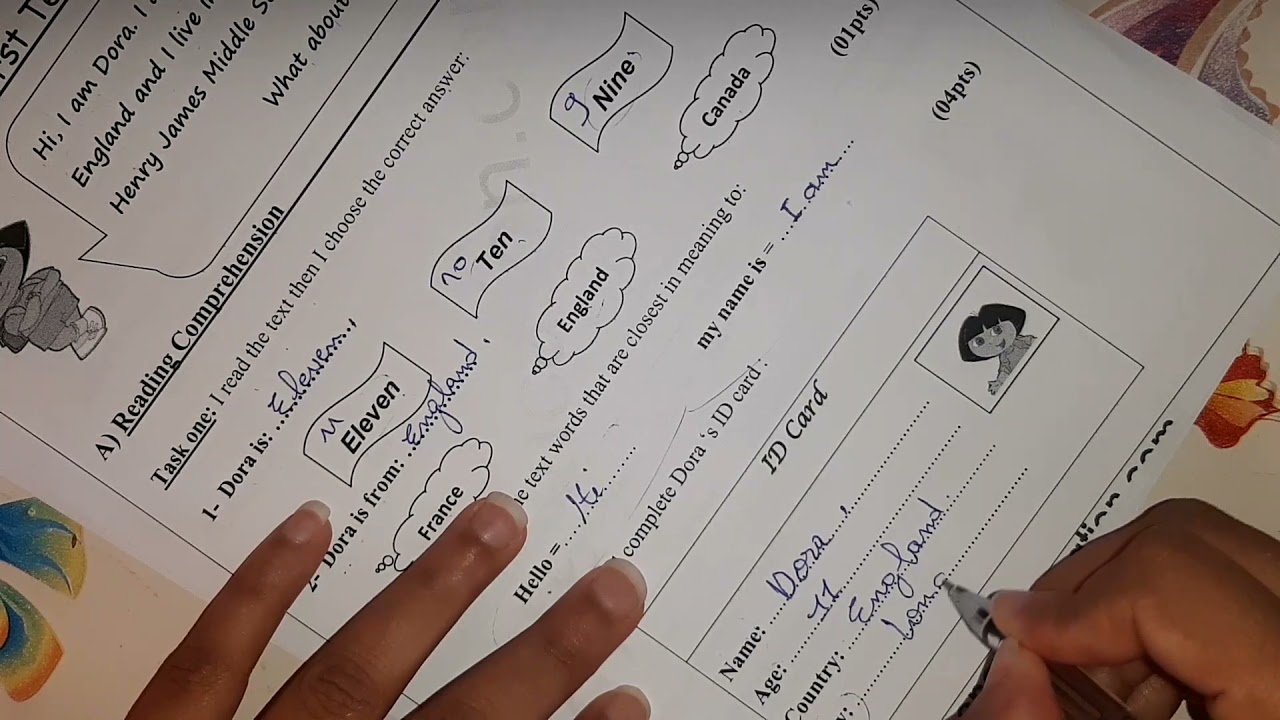 Hi, I am Dora. I
England and I live i
Henry James Middle S
What about
A) Reading Comprehension
Task one: I read the text then I choose the correct answer:
1- Dora is: ...Eleven...
11 Eleven
10 Ten
9 Nine
2- Dora is from: ..England.
France
England
Canada
text words that are closest in meaning to: (01pts)
Hello = ......Hi.......
my name is = ....I am....
complete Dora 's ID card: (04pts)
ID Card
Name: Dora
Age: 11
Country: England
Lon